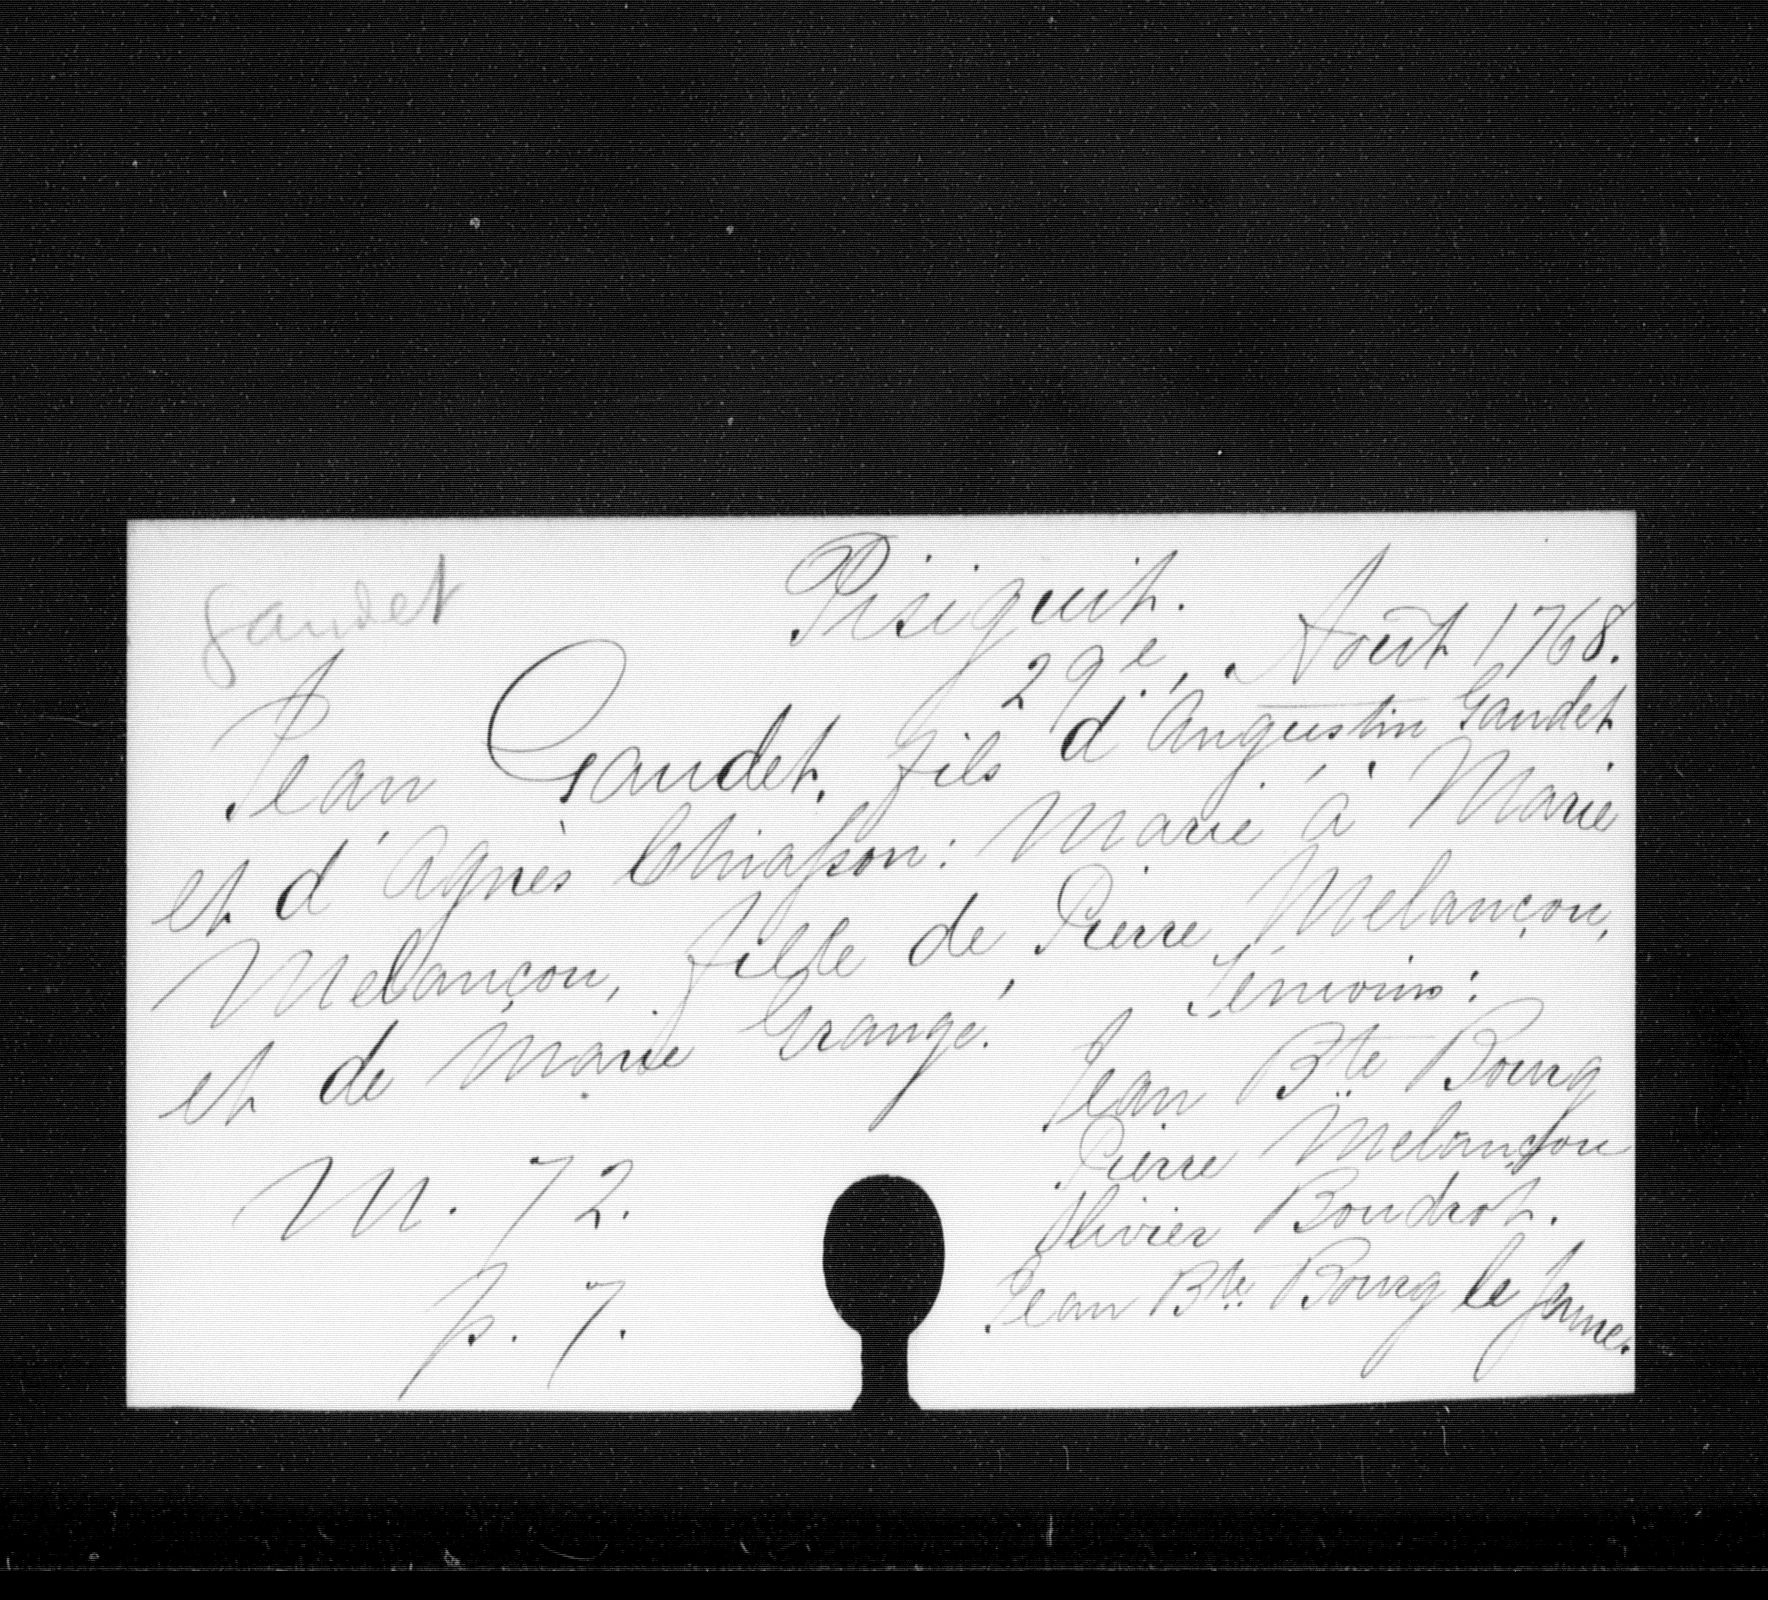 Gaudet
Pisiguit.
29e, Août 1768.
Jean Gaudet, fils d'Augustin Gaudet
et d'Agnès Chiasson: Marié à Marie
Melançon, fille de Pierre Melançon,
et de Marie Grangé.
Témoins:
Jean Bte Bourg
Pierre Melançon
Olivier Boudrot.
Jean Bte Bourg le Jeune.
M. 72.
p. 7.